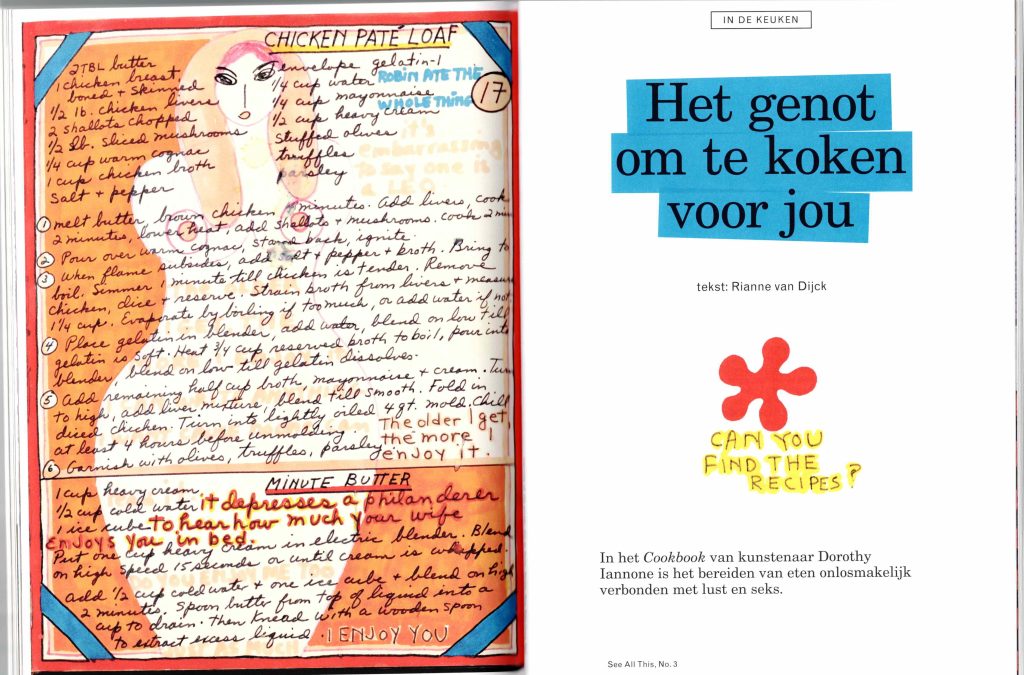 CHICKEN PATÉ LOAF
2TBL butter
1 chicken breast,
boned + skinned
1/2 lb. chicken livers
2 shallots chopped
1/2 lb. sliced mushrooms
1/4 cup warm cognac
1 cup chicken broth
salt + pepper
1 envelope gelatin-1
1/4 cup water
1/4 cup mayonnaise
1/2 cup heavy cream
stuffed olives
truffles
parsley
ROBIN ATE THE
WHOLE THING
17
it's
embarrassing
to say one is
① melt butter, brown chicken minutes. Add livers, cook
2 minutes, lower heat, add shallots + mushrooms. cook 2 min
② Pour over warm cognac, stand back, ignite.
③ When flame subsides, add salt + pepper + broth. Bring to
boil. Simmer minute till chicken is tender. Remove
chicken, dice + reserve. Strain broth from livers + measure
1 1/4 cup. Evaporate by boiling if too much, or add water if not
④ Place gelatin in blender, add water, blend on low till
gelatin is soft. Heat 3/4 cup reserved broth to boil, pour into
blender, blend on low till gelatin dissolves.
⑤ Add remaining half cup broth, mayonnaise + cream. Turn
to high, add liver mixture, blend till smooth. Fold in
diced chicken. Turn into lightly oiled 4 qt. mold. Chill
at least 4 hours before unmolding.
⑥ Garnish with olives, truffles, parsley
The older I get,
the more I
enjoy it.
MINUTE BUTTER
1 cup heavy cream
1/2 cup cold water
1 ice cube
it depresses a philanderer
to hear how much your wife
enjoys you in bed.
Put one cup heavy cream in electric blender. Blend
on high speed 15 seconds or until cream is whipped.
add 1/2 cup cold water + one ice cube + blend on high
2 minutes. Spoon butter from top of liquid into a
cup to drain. Then knead with a wooden spoon
to extract excess liquid. I ENJOY YOU
IN DE KEUKEN
Het genot
om te koken
voor jou
tekst: Rianne van Dijck
CAN YOU
FIND THE
RECIPES?
In het Cookbook van kunstenaar Dorothy
Iannone is het bereiden van eten onlosmakelijk
verbonden met lust en seks.
See All This, No. 3